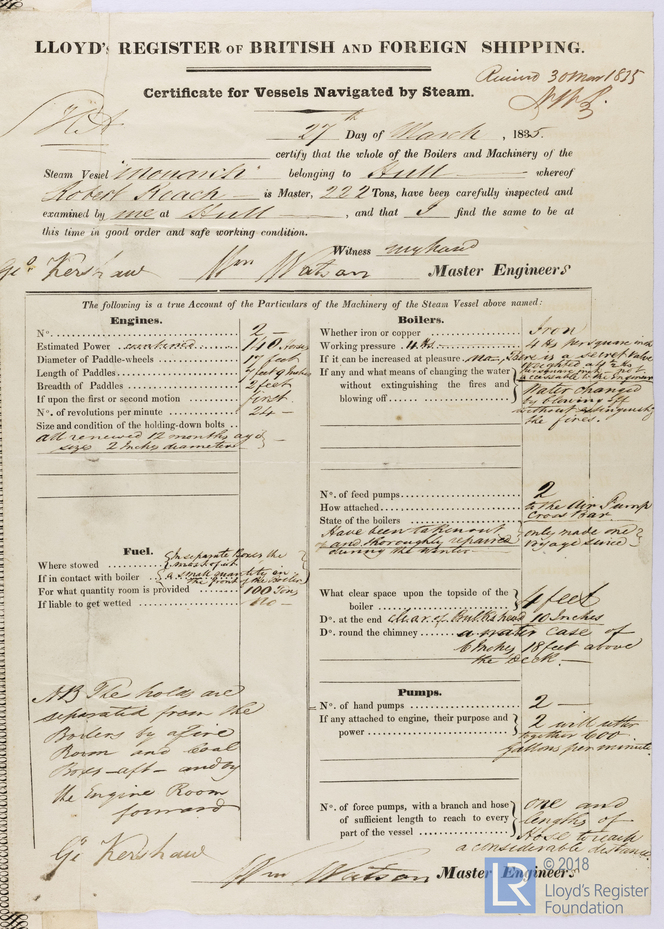 LLOYD'S REGISTER OF BRITISH AND FOREIGN SHIPPING.
30 Mar 1835
Certificate for Vessels Navigated by Steam.
27th Day of March, 1835.
certify that the whole of the Boilers and Machinery of the
Steam Vessel Monarch belonging to Hull whereof
Robert Keach is Master, 222 Tons, have been carefully inspected and
examined by me at Hull, and that I find the same to be at
this time in good order and safe working condition.
Witness my hand
Geo. Kershaw Wm Watson Master Engineers
The following is a true Account of the Particulars of the Machinery of the Steam Vessel above named:
Engines.
No. 2
Estimated Power 140 Horses
Diameter of Paddle-wheels 17 feet
Length of Paddles 7 feet 9 Inches
Breadth of Paddles 2 feet
If upon the first or second motion first
No. of revolutions per minute 24
Size and condition of the holding-down bolts
all renewed 12 months ago
size 2 Inches diameter
Fuel.
Where stowed In separate Boxes the most of it
If in contact with boiler a small quantity on the front of the Boiler
For what quantity room is provided 100 Tons
If liable to get wetted no
NB The holds are
separated from the
Boilers by a fire
Room and Coal
Boxes aft and by
the Engine Room
forward
Boilers.
Whether iron or copper Iron
Working pressure 4 lbs. 4 lbs per square inch
If it can be increased at pleasure no, there is a secret valve
weighted
If any and what means of changing the water without extinguishing the fires and blowing off
Water changed
by blowing off
without extinguishing
the fires.
No. of feed pumps 2
How attached to the Air Pump
Cross Bar
State of the boilers
Have been taken out
and thoroughly repaired
during the winter
only made one
voyage since
What clear space upon the topside of the
boiler 4 feet
Do. at the end clear of Bulkhead 10 Inches
Do. round the chimney a water case of
6 Inches 18 feet above
the Deck.
Pumps.
No. of hand pumps 2
If any attached to engine, their purpose and
power 2 will
together 600
gallons per minute
No. of force pumps, with a branch and hose
of sufficient length to reach to every
part of the vessel
one and
lengths of
Hose to reach
a considerable distance
Geo Kershaw
Wm Watson Master Engineers
© 2018
LR Lloyd's Register
Foundation